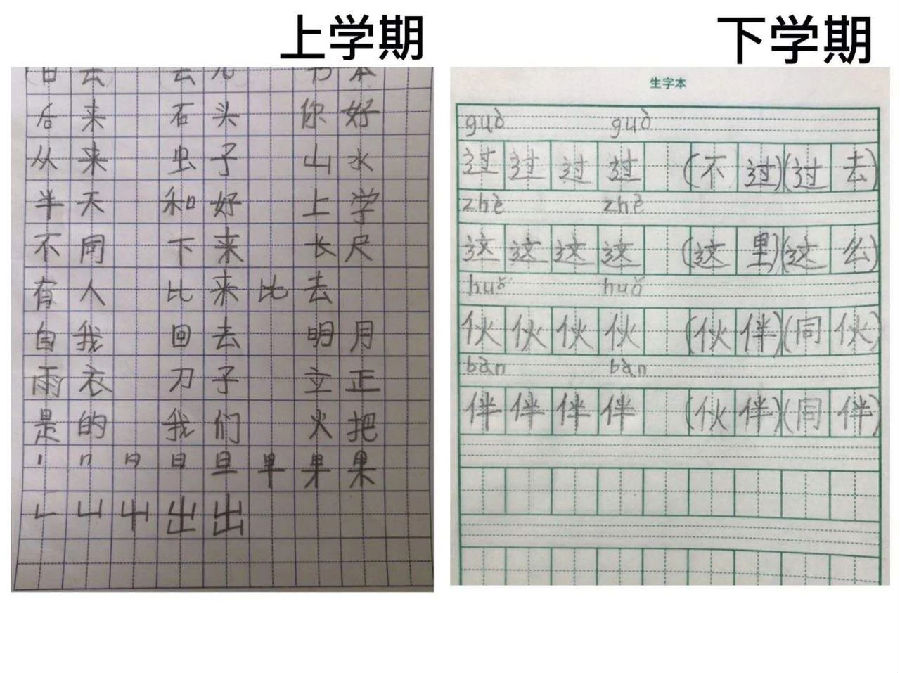 上学期
下学期
去 去 儿 书 本
后来 石头 你好
从来 虫子 山水
半天 和好 上学
不同 下来 长尺
有人 比来比去
自我 回去 明月
雨衣 刀子 立正
是的 我们 火把
丨 冂 日 日 旦 早 果 果
𠃊 凵 屮 出 出
生字本
guò guò
过 过 过 过 (不过)(过去)
zhè zhè
这 这 这 这 (这里)(这么)
huǒ huǒ
伙 伙 伙 伙 (伙伴)(同伙)
bàn bàn
伴 伴 伴 伴 (伙伴)(同伴)